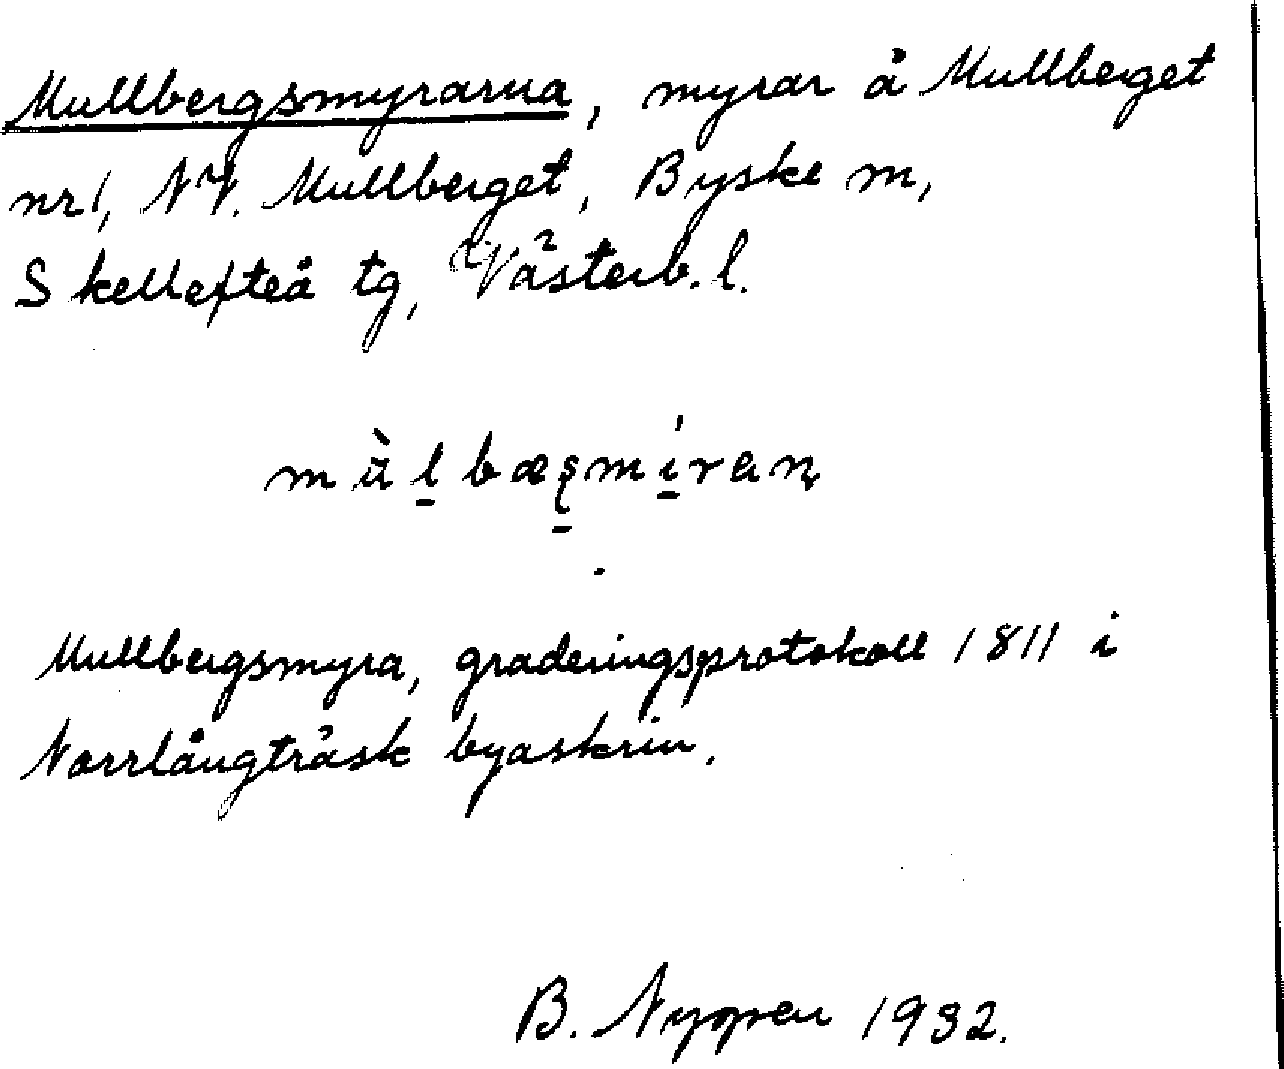 Mullbergsmyrarna, myrar å Mullberget
nr 1, NV. Mullberget, Byske sn,
Skellefteå tg, Västerb. l.
mùḻbæʂmi̱ran̨
Mullbergsmyra, graderingsprotokoll 1811 i
Norrlångträsk byaskrin.
B. Nyopen 1932.